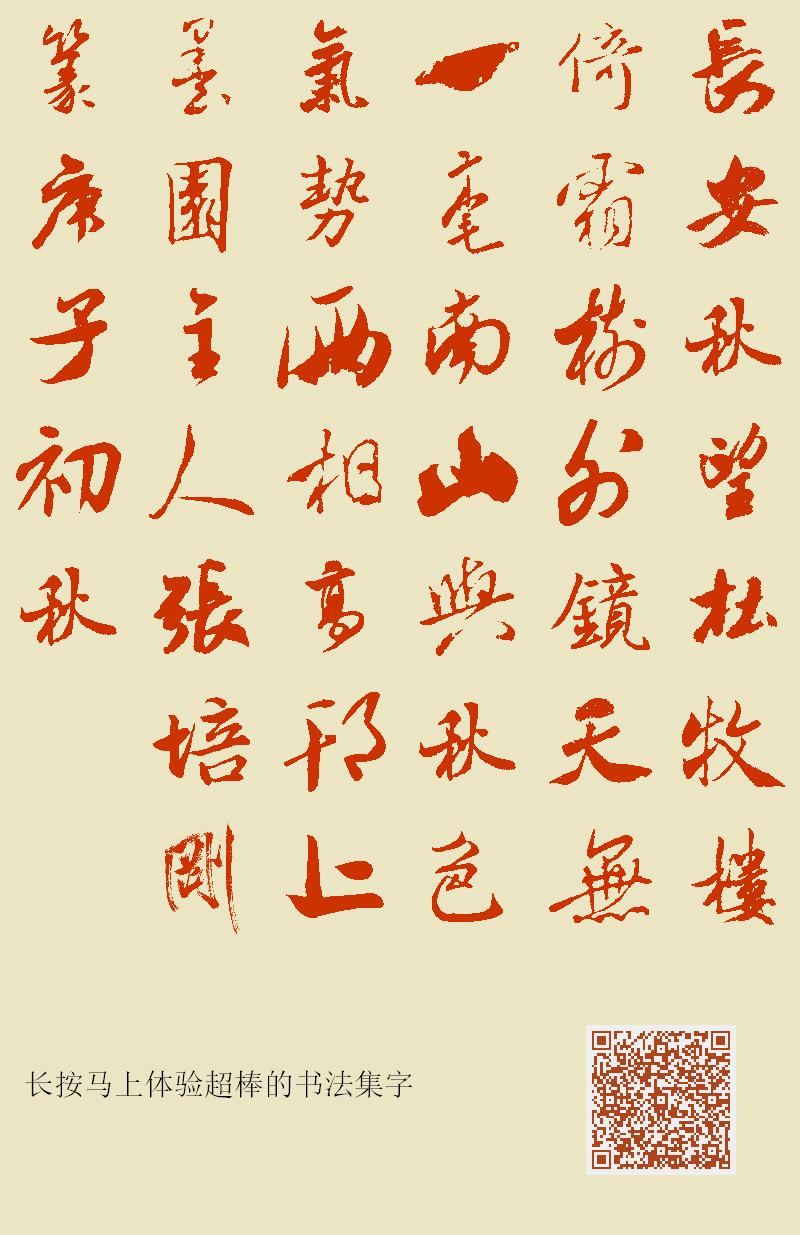 長安秋望杜牧樓
倚霜樹外鏡天無
一毫南山與秋色
氣勢兩相高邗上
墨園主人張培剛
篆庚子初秋
长按马上体验超棒的书法集字